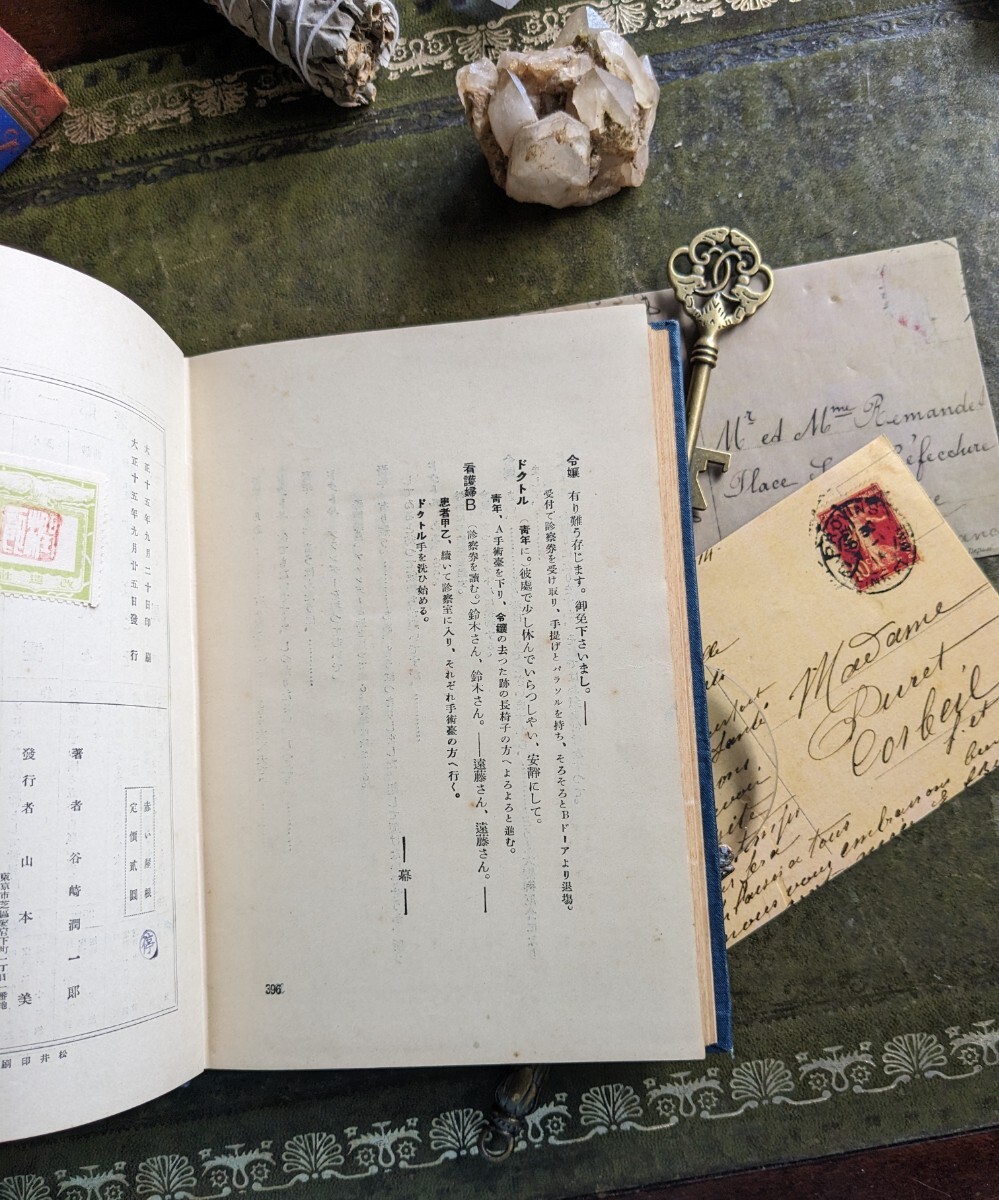 令孃 有り難う存じます。御免下さいまし。――
受付で診察券を受け取り、手提げとパラソルを持ち、そろそろとBドーアより退塲。
ドクトル (靑年に。)彼處で少し休んでいらつしやい、安靜にして。
靑年、A手術臺を下り、令孃の去つた跡の長椅子の方へよろよろと進む。
看護婦B (診察券を讀む。)鈴木さん、鈴木さん。――遠藤さん、遠藤さん。――
患者甲乙、續いて診察室に入り、それぞれ手術臺の方へ行く。
ドクトル手を洗ひ始める。
――幕――
396
大正十五年九月二十日印刷
大正十五年九月廿五日發行
赤い屋根
定價貳圓
停
著者 谷崎潤一郎
發行者 山本 美
東京市芝區愛宕下町一丁目一番地
松井印刷
改造社
Mr ed Mme Remandet
Place
Préfecture
Madame
Buret
Corbeil